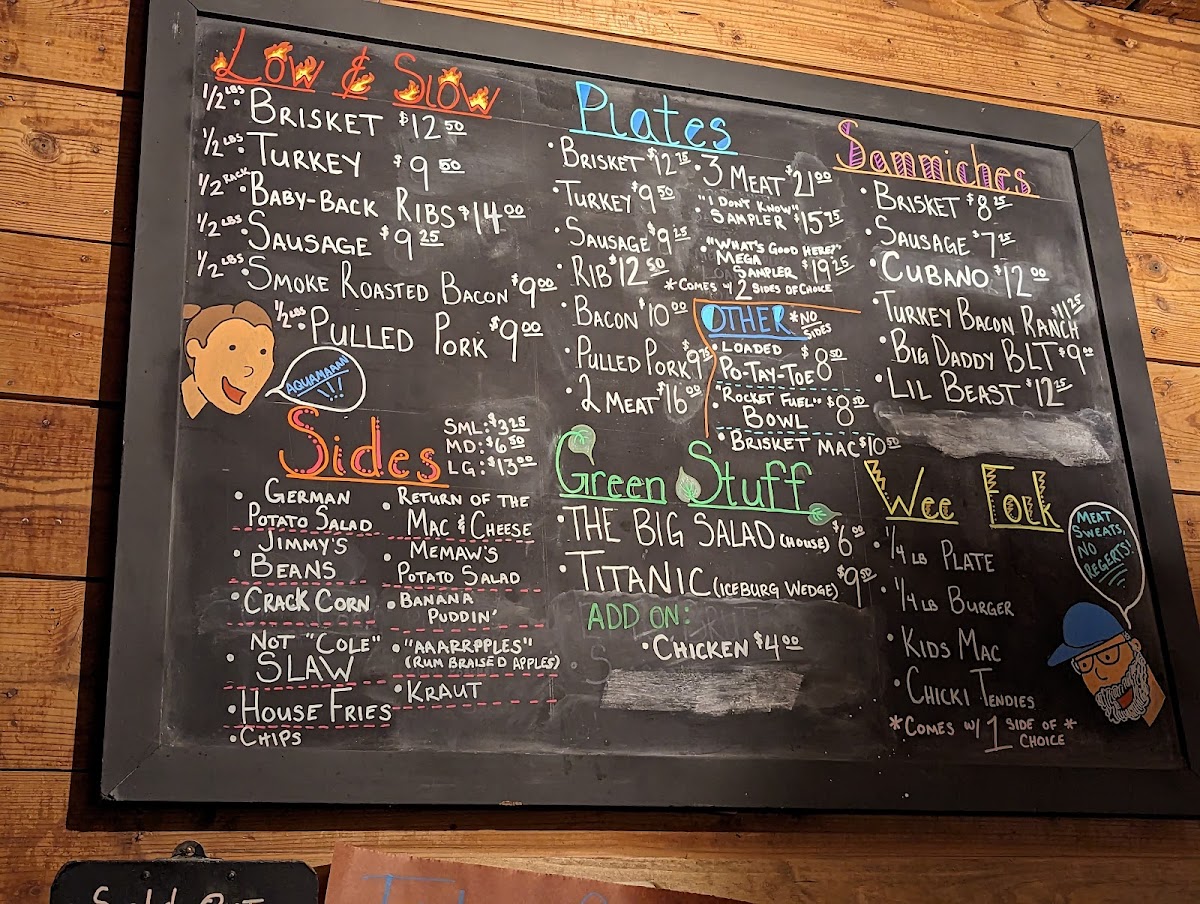 Low & Slow
1/2 LBS • BRISKET $12 50
1/2 LBS • TURKEY $9 50
1/2 RACK • BABY-BACK RIBS $14 00
1/2 LBS • SAUSAGE $9 25
1/2 LBS • SMOKE ROASTED BACON $9 00
1/2 LBS • PULLED PORK $9 00
AQUAMAAAN
!!!
Sides
SML: $3 25
MD: $6 50
LG: $13 00
• GERMAN
POTATO SALAD
• JIMMY'S
BEANS
• CRACK CORN
• NOT "COLE"
SLAW
• HOUSE FRIES
• CHIPS
• RETURN OF THE
MAC & CHEESE
• MEMAW'S
POTATO SALAD
• BANANA
PUDDIN'
• "AAARRPPLES"
(RUM BRAISED APPLES)
• KRAUT
Plates
• BRISKET $12 75
• TURKEY $9 50
• SAUSAGE $9 25
• RIB $12 50
• BACON $10 00
• PULLED PORK $9 25
• 2 MEAT $16 00
• 3 MEAT $21 00
• "I DON'T KNOW"
SAMPLER $15 75
• "WHAT'S GOOD HERE?"
MEGA
SAMPLER $19 25
*COMES W/ 2 SIDES OF CHOICE
OTHER *NO
SIDES
• LOADED
PO-TAY-TOE $8 50
• "ROCKET FUEL"
BOWL $8 50
• BRISKET MAC $10 50
Green Stuff
• THE BIG SALAD (HOUSE) $6 00
• TITANIC (ICEBURG WEDGE) $9 50
ADD ON:
• CHICKEN $4 00
Sammiches
• BRISKET $8 25
• SAUSAGE $7 25
• CUBANO $12 00
• TURKEY BACON RANCH $11 25
• BIG DADDY BLT $9 00
• LIL BEAST $12 25
Wee Folk
• 1/4 LB PLATE
• 1/4 LB BURGER
• KIDS MAC
• CHICKI TENDIES
*COMES W/ 1 SIDE OF *
CHOICE
MEAT
SWEATS,
NO
REGERTS!